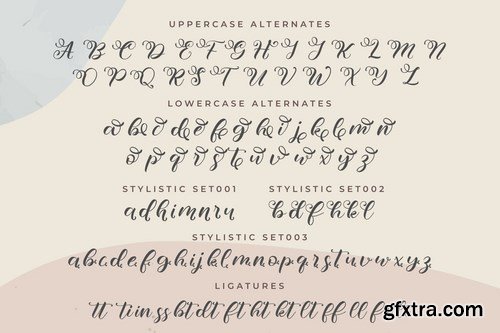 UPPERCASE ALTERNATES
A B C D E F G H I J K L M N
O P Q R S T U V W X Y Z
LOWERCASE ALTERNATES
a b c d e f g h i j k l m n
o p q r s t u v w x y z
STYLISTIC SET001 STYLISTIC SET002
a d h i m n r u b d f h k l
STYLISTIC SET003
a b c d e f g h i j k l m n o p q r s t u v w x y z
LIGATURES
tt ti in ss bt dt ft ht kt lt ff ll
gfxtra.com